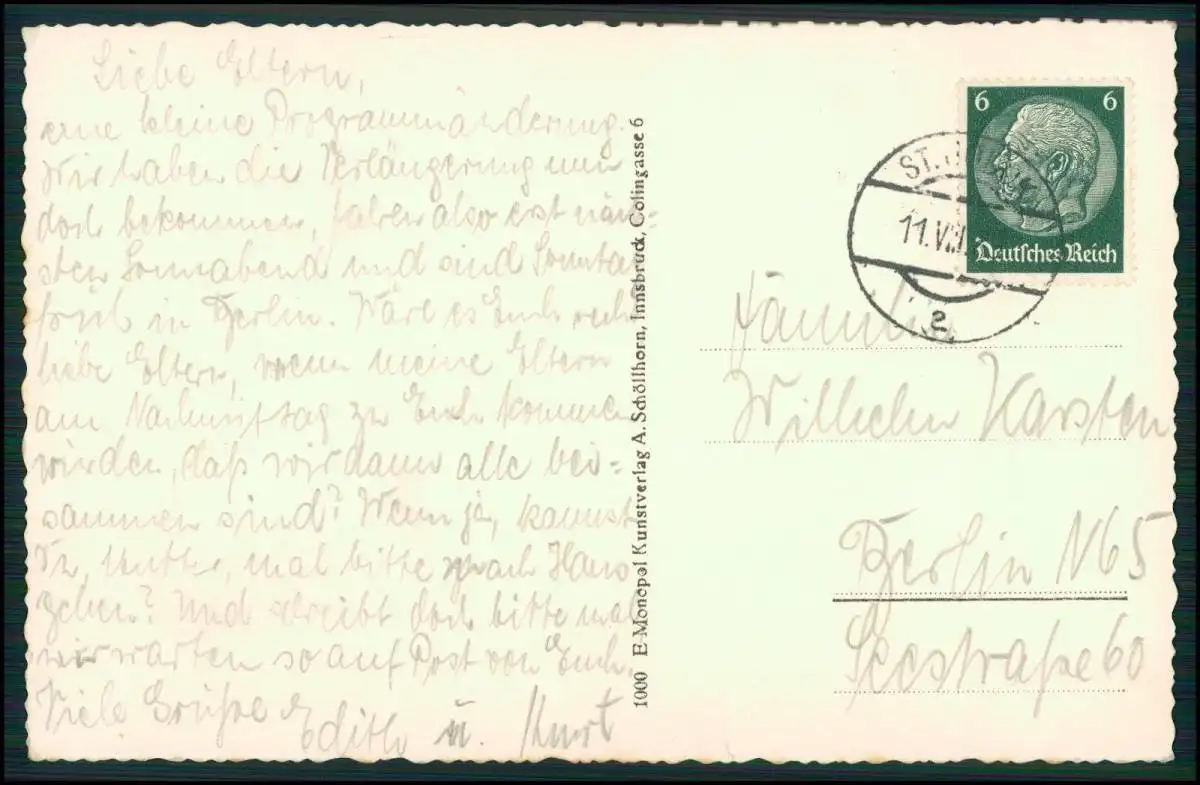 Liebe Eltern,
eine kleine Programmänderung.
Wir haben die Verlängerung nun
doch bekommen, fahren also erst näch=
sten Sonnabend und sind Sonntag
früh in Berlin. Wäre es Euch recht
liebe Eltern, wenn meine Eltern
am Nachmittag zu Euch kommen
würden, daß wir dann alle bei=
sammen sind? Wenn ja, kannst
Du, Mutti, mal bitte nach Haus
gehen? Und schreibt doch bitte mal
wir warten so auf Post von Euch.
Viele Grüße
Edith u. Kurt
1000 E Monopol Kunstverlag A. Schöllhorn, Innsbruck, Colingasse 6
6 6
Deutsches Reich
ST.
11.VII
e
Familie
Wilhelm Karsten
Berlin N65
Seestraße 60